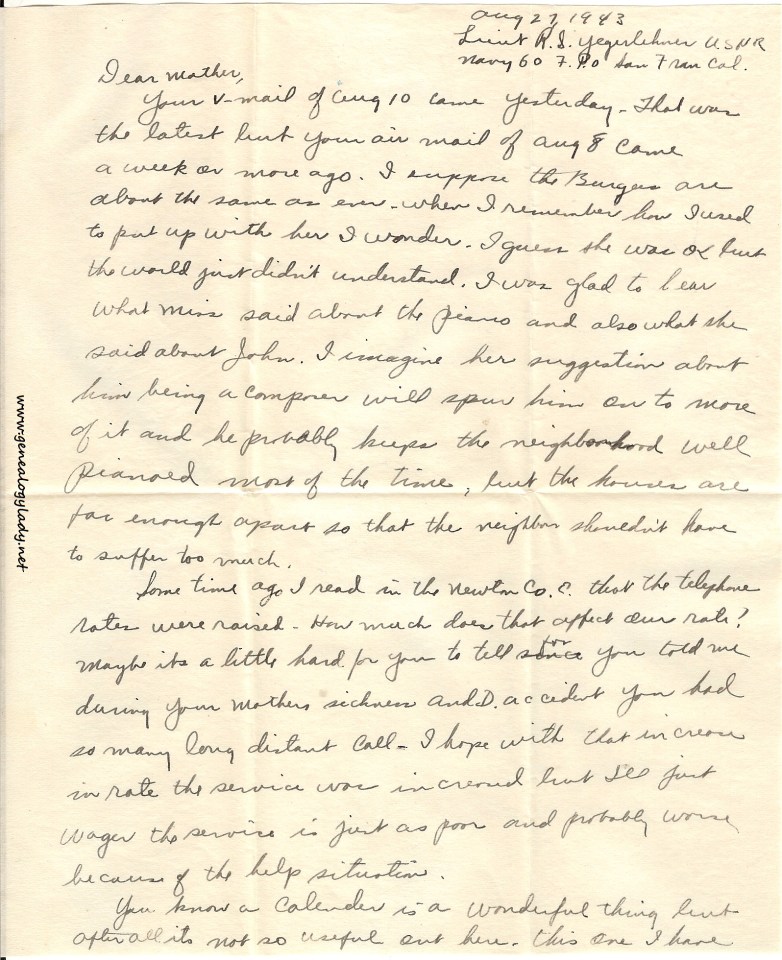 Aug 27, 1943
Lieut R. S. Yegerlehner USNR
Navy 60 F.P.O San Fran Cal.
Dear Mother,
Your V-mail of Aug 10 came yesterday - That was
the latest but your air mail of Aug 8 came
a week or more ago. I suppose the Burgess are
about the same as ever - when I remember how I used
to put up with her I wonder. I guess she was OK but
the world just didn't understand. I was glad to hear
what Miss said about the piano and also what she
said about John. I imagine her suggestion about
him being a composer will spur him on to more
of it and he probably keeps the neighborhood well
pianoed most of the time, but the houses are
far enough apart so that the neighbor shouldn't have
to suffer too much.
Some time ago I read in the Newton Co. E. that the telephone
rates were raised - How much does that affect our rate?
Maybe its a little hard for you to tell for you told me
during your Mothers sickness and D. accident you had
so many long distant call - I hope with that increase
in rate the service was increased but Ill just
wager the service is just as poor and probably worse
because of the help situation.
You know a Calender is a wonderful thing but
after all its not so useful out here. This one I have
www.genealogylady.net